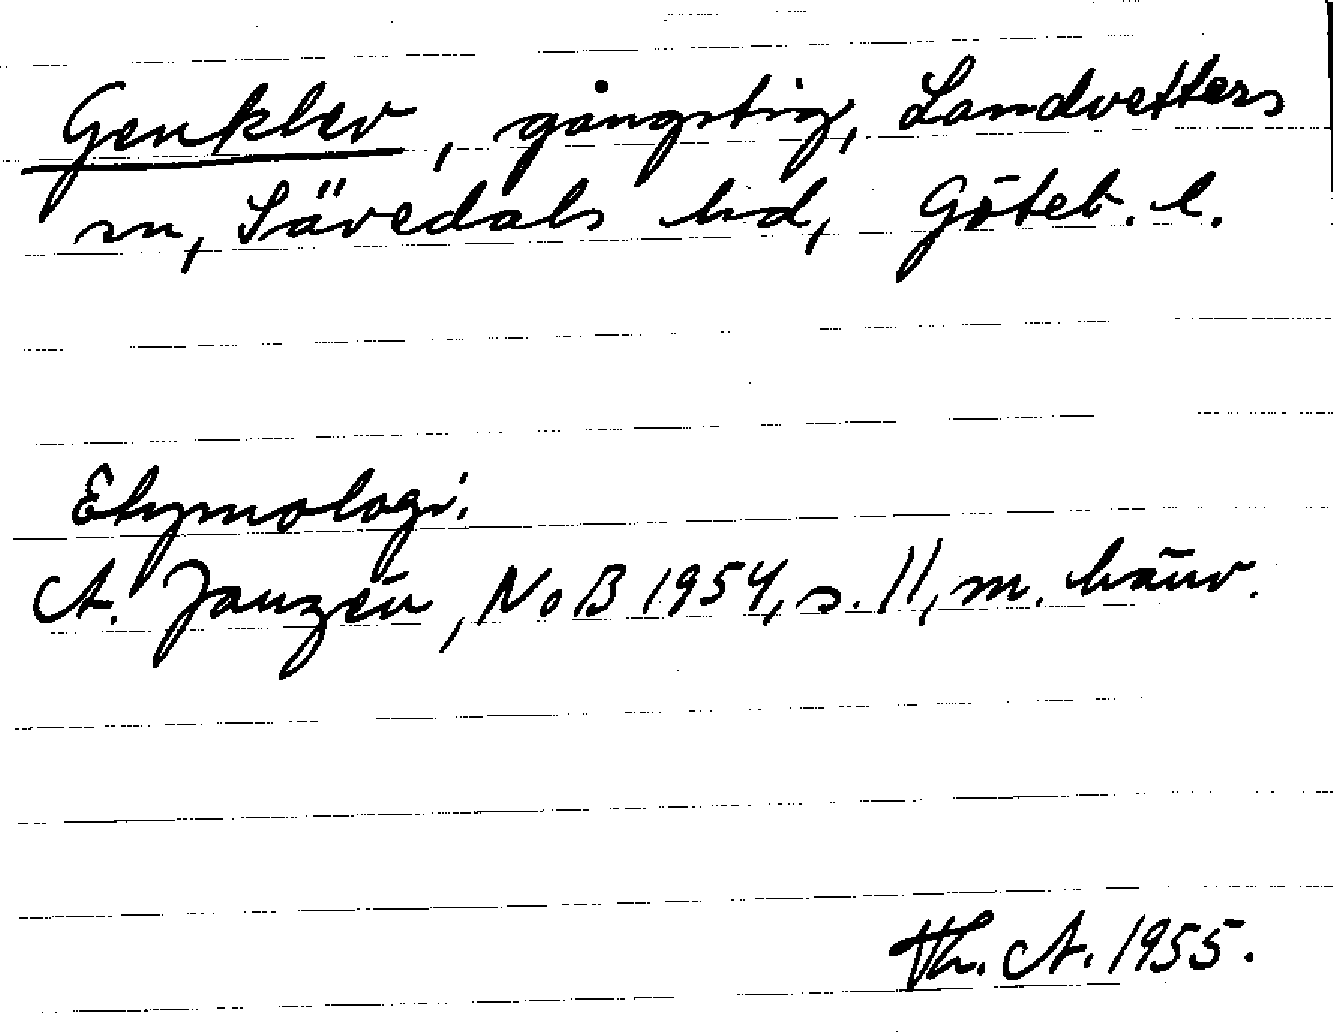 Genklev, gångstig, Landvetters
sn, Sävedals hd, Göteb. l.
Etymologi:
A. Janzén, NoB 1954, s. 11, m. hänv.
Th. A. 1955.